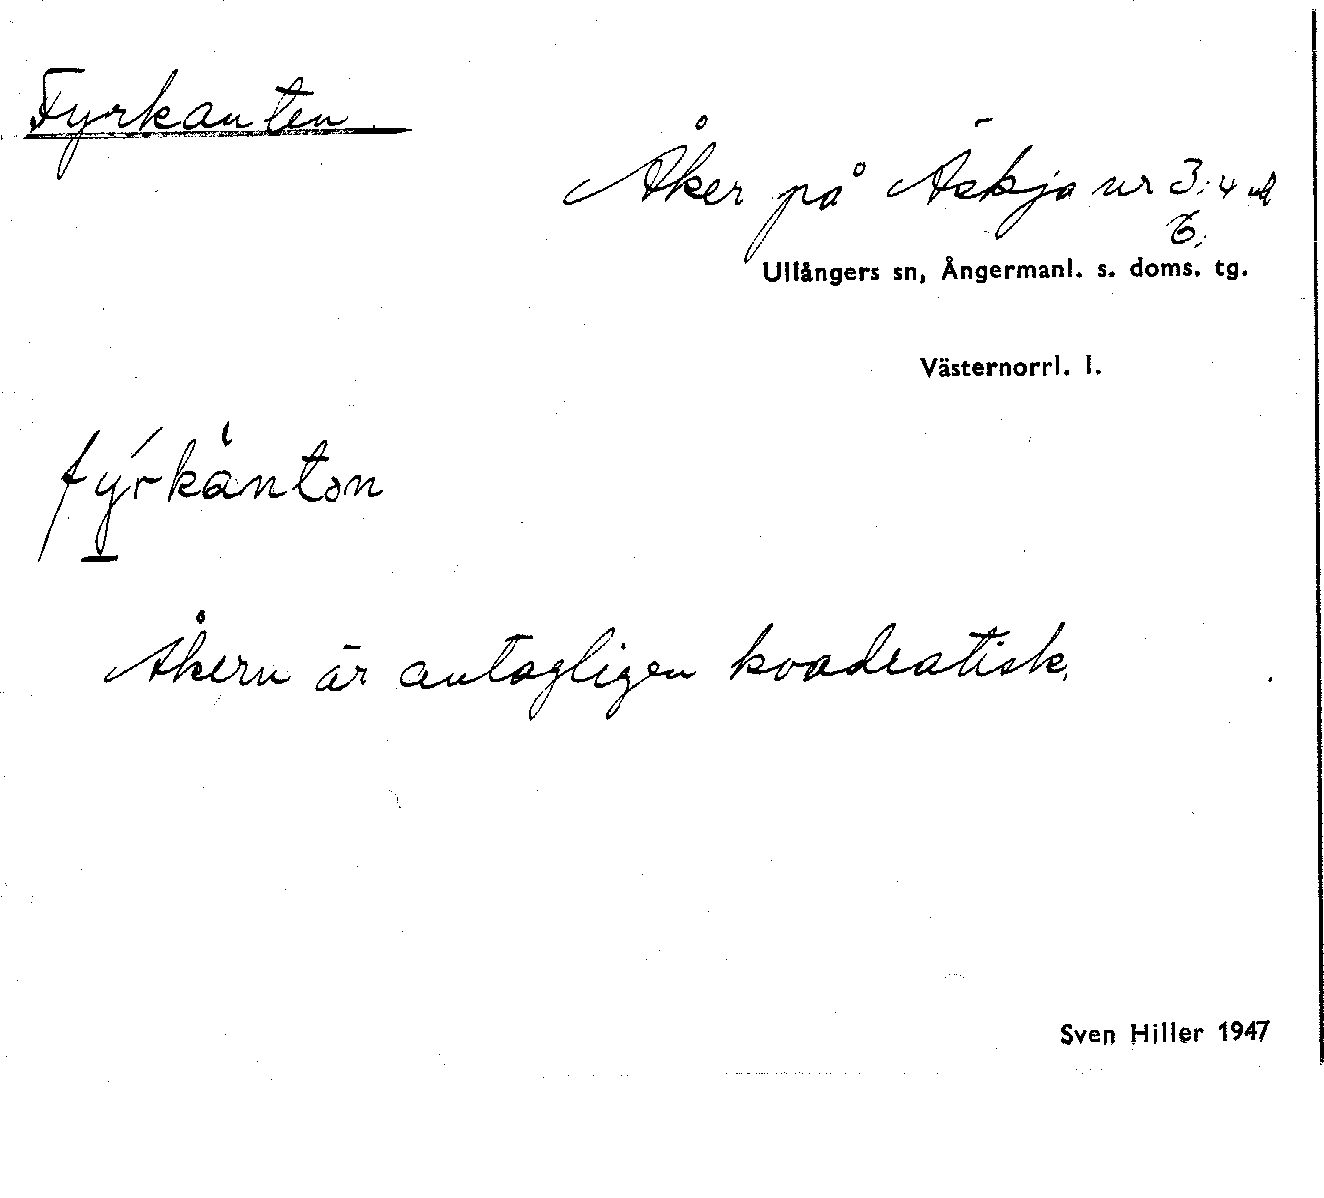 Fyrkanten
Åker på Äskja nr 3:4 
Ullångers sn, Ångermanl. s. doms. tg.
Västernorrl. l.
fy´rkàntən
Åkern är antagligen kvadratisk.
Sven Hiller 1947